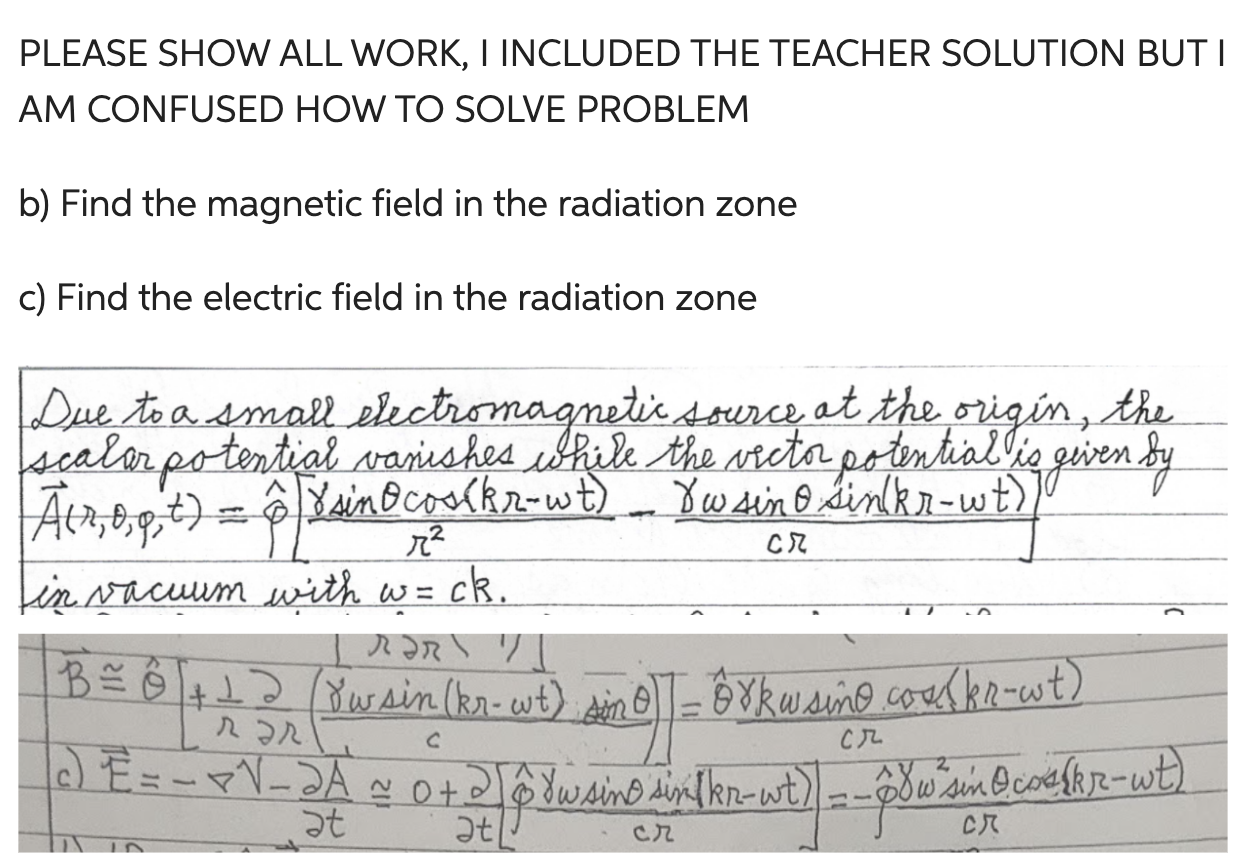 PLEASE SHOW ALL WORK, I INCLUDED THE TEACHER SOLUTION BUT I
AM CONFUSED HOW TO SOLVE PROBLEM
b) Find the magnetic field in the radiation zone
c) Find the electric field in the radiation zone
Due to a small electromagnetic source at the origin, the
scalar potential vanishes while the vector potential is given by
A⃗(r,θ,φ,t) = φ̂ [γ sinθ cos(kr-ωt) / r² - γω sinθ sin(kr-ωt) / cr]
in vacuum with ω = ck.
B⃗ ≅ θ̂ [+ 1/r ∂/∂r (γω sin(kr-ωt) / c sinθ)] = θ̂ γkω sinθ cos(kr-ωt) / cr
c) E⃗ = -∇V - ∂A⃗/∂t ≅ 0 + ∂/∂t [φ̂ γω sinθ sin(kr-ωt) / cr] = -φ̂ γω² sinθ cos(kr-ωt) / cr